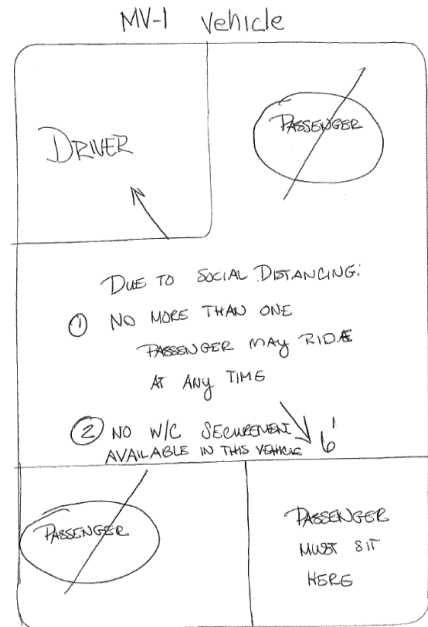 MV-1 Vehicle
DRIVER
PASSENGER
DUE TO SOCIAL DISTANCING:
① NO MORE THAN ONE
PASSENGER MAY RIDE
AT ANY TIME
② NO W/C SECUREMENT
AVAILABLE IN THIS VEHICLE
6'
PASSENGER
PASSENGER
MUST SIT
HERE